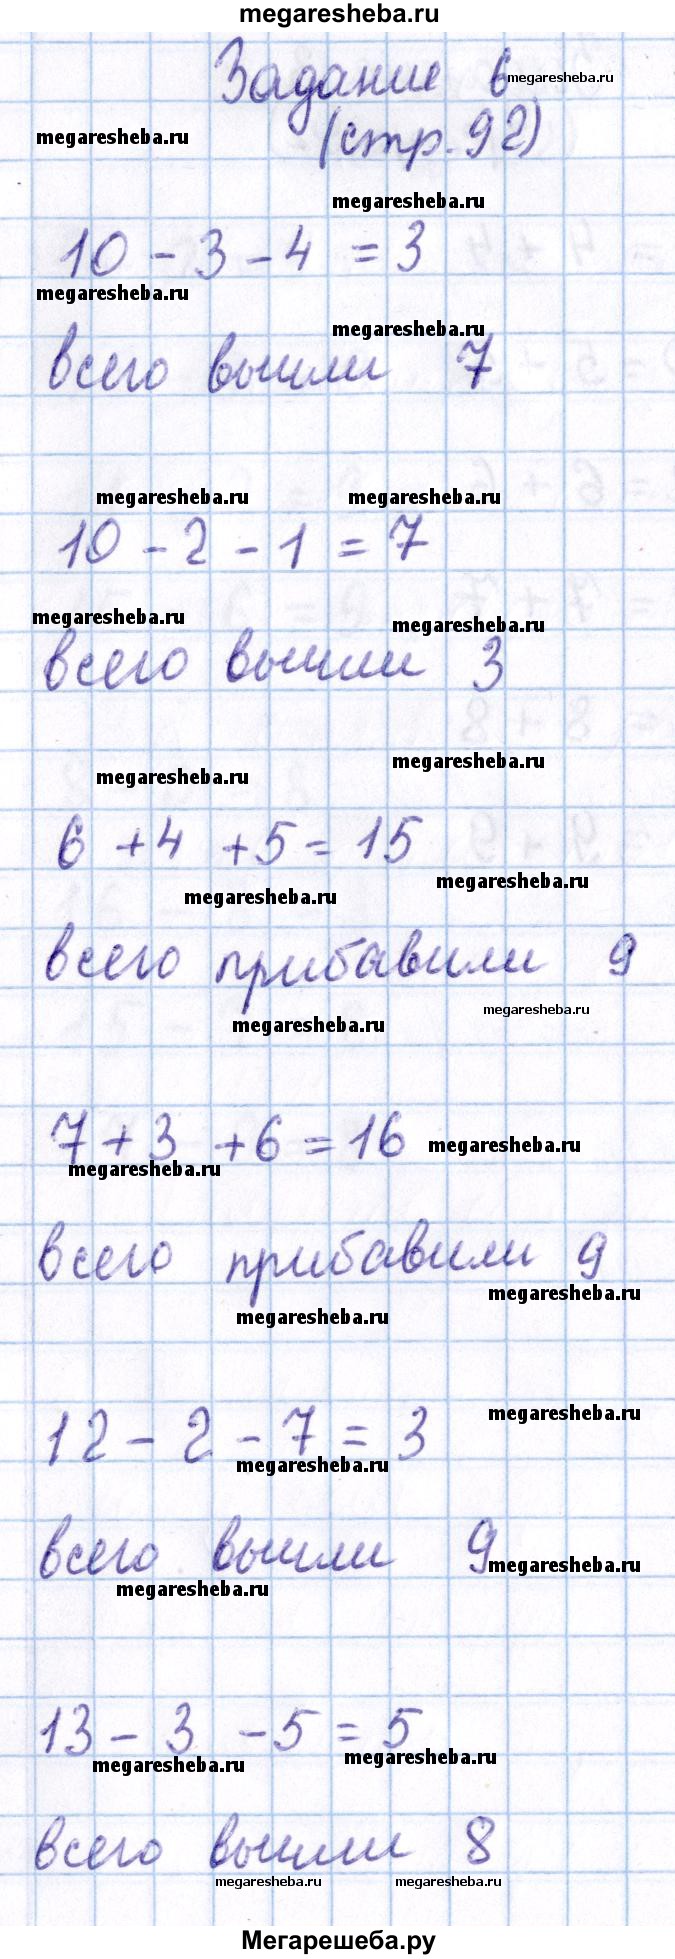 megaresheba.ru
Задание 6
megaresheba.ru
megaresheba.ru
(стр.92)
megaresheba.ru
10 - 3 - 4 = 3
megaresheba.ru
megaresheba.ru
всего вычли 7
megaresheba.ru megaresheba.ru
10 - 2 - 1 = 7
megaresheba.ru
megaresheba.ru
всего вычли 3
megaresheba.ru
megaresheba.ru
6 + 4 + 5 = 15
megaresheba.ru
megaresheba.ru
всего прибавили 9
megaresheba.ru
megaresheba.ru
7 + 3 + 6 = 16
megaresheba.ru
megaresheba.ru
всего прибавили 9
megaresheba.ru
megaresheba.ru
megaresheba.ru
12 - 2 - 7 = 3
megaresheba.ru
всего вычли 9
megaresheba.ru
megaresheba.ru
13 - 3 - 5 = 5
megaresheba.ru
megaresheba.ru
всего вычли 8
megaresheba.ru megaresheba.ru
Мегарешеба.ру